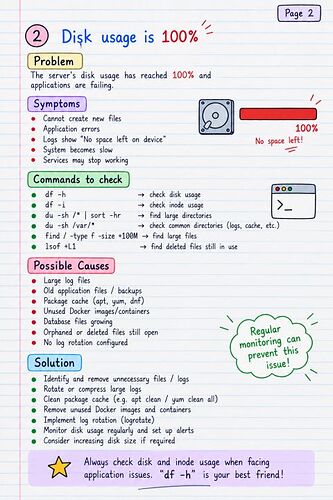 Page 2
2 Disk usage is 100%
Problem
The server's disk usage has reached 100% and
applications are failing.
Symptoms
• Cannot create new files
• Application errors
• Logs show "No space left on device"
• System becomes slow
• Services may stop working
100%
No space left!
Commands to check
• df -h → check disk usage
• df -i → check inode usage
• du -sh /* | sort -hr → find large directories
• du -sh /var/* → check common directories (logs, cache, etc.)
• find / -type f -size +100M → find large files
• lsof +L1 → find deleted files still in use
>_
Possible Causes
• Large log files
• Old application files / backups
• Package cache (apt, yum, dnf)
• Unused Docker images/containers
• Database files growing
• Orphaned or deleted files still open
• No log rotation configured
Regular
monitoring can
prevent this
issue!
Solution
• Identify and remove unnecessary files / logs
• Rotate or compress large logs
• Clean package cache (e.g. apt clean / yum clean all)
• Remove unused Docker images and containers
• Implement log rotation (logrotate)
• Monitor disk usage regularly and set up alerts
• Consider increasing disk size if required
Always check disk and inode usage when facing
application issues. "df -h" is your best friend!